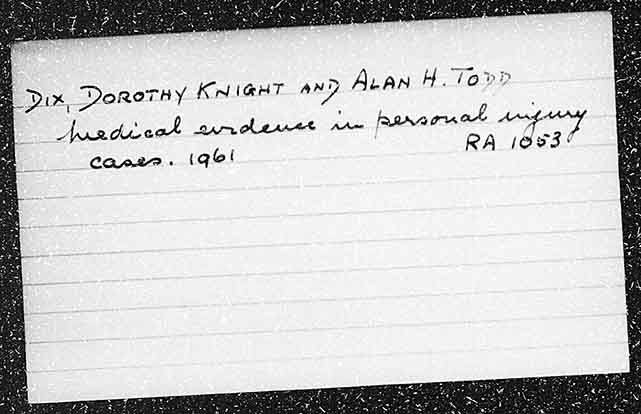 DIX, DOROTHY KNIGHT AND ALAN H. TODD
Medical evidence in personal injury
cases. 1961 RA 1053